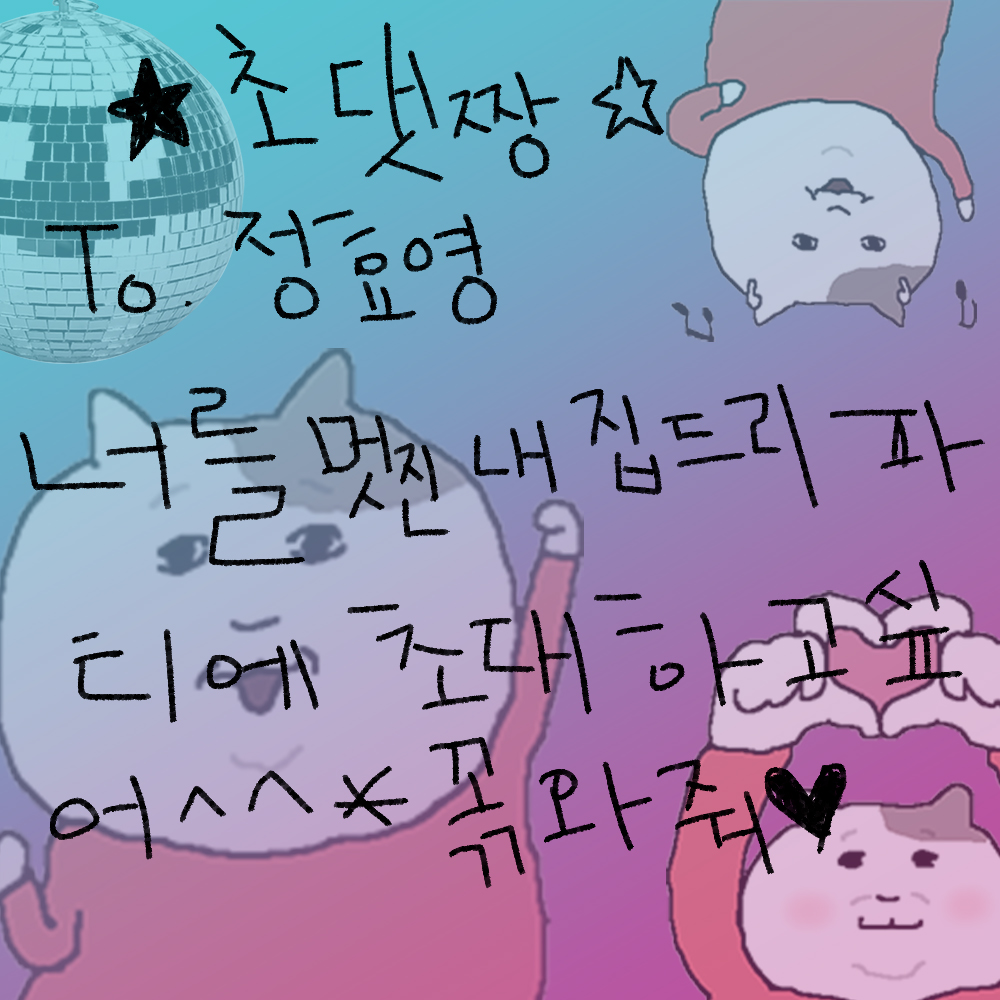 ★초댓짱☆
To. 정효영
너를 멋진 내 집드리 파
티에 초대하고싶
어^^* 꼭 와줘♥